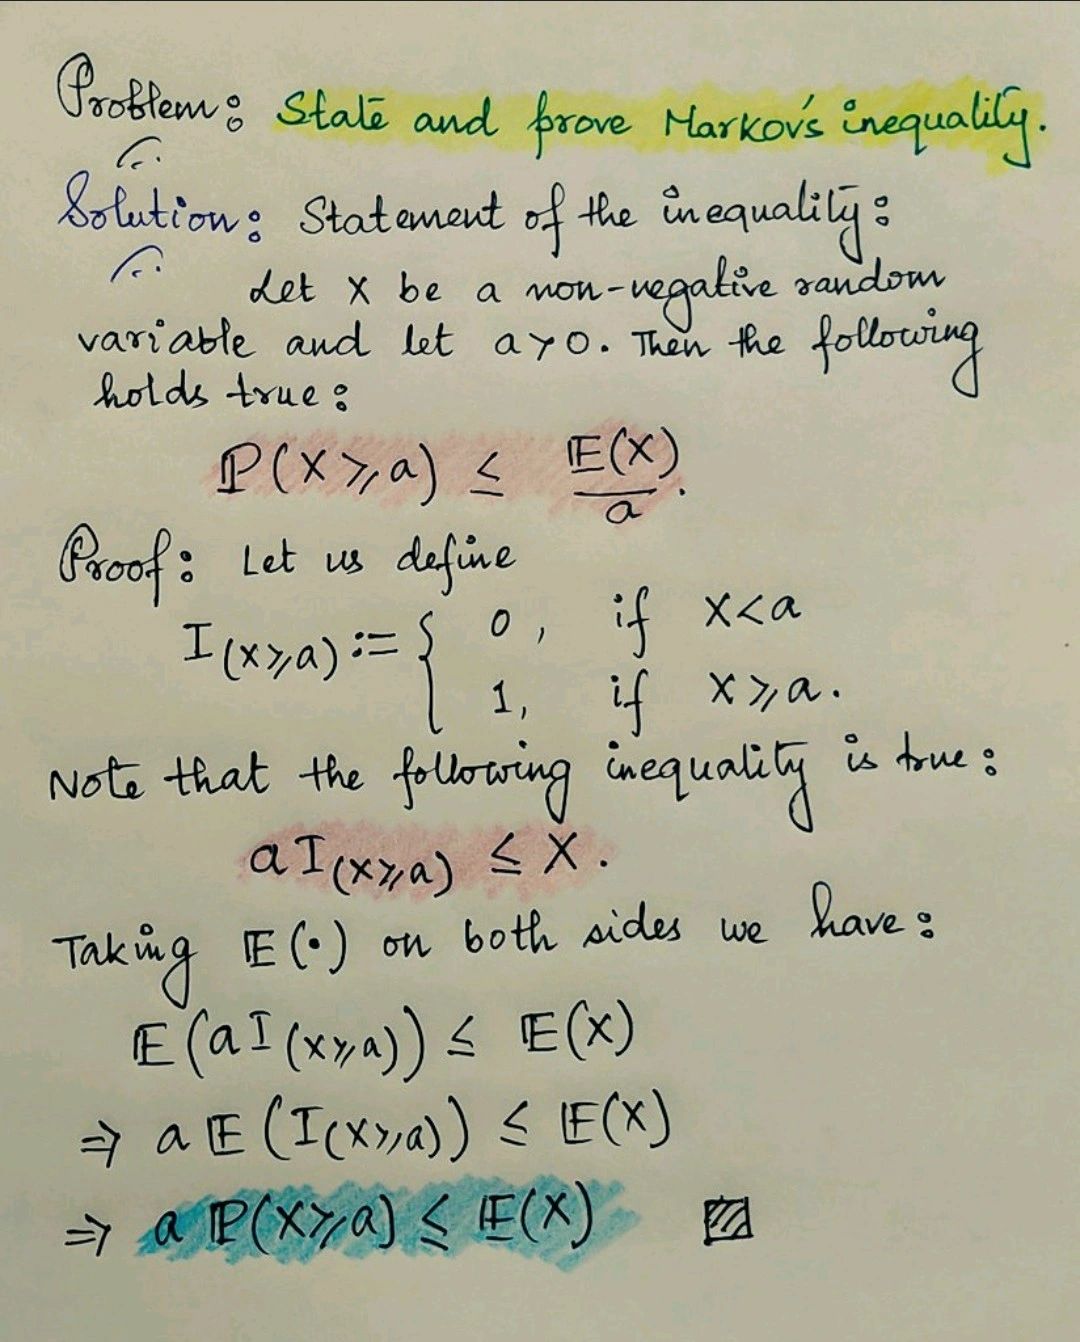 Problem: State and prove Markov's inequality.
Solution: Statement of the inequality:
Let X be a non-negative random
variable and let a>0. Then the following
holds true:
ℙ(X⩾a) ≤ 𝔼(X)/a.
Proof: Let us define
I(X⩾a) := { 0, if X<a
1, if X⩾a.
Note that the following inequality is true:
aI(X⩾a) ≤ X.
Taking 𝔼(·) on both sides we have:
𝔼(aI(X⩾a)) ≤ 𝔼(X)
⇒ a𝔼(I(X⩾a)) ≤ 𝔼(X)
⇒ aℙ(X⩾a) ≤ 𝔼(X)